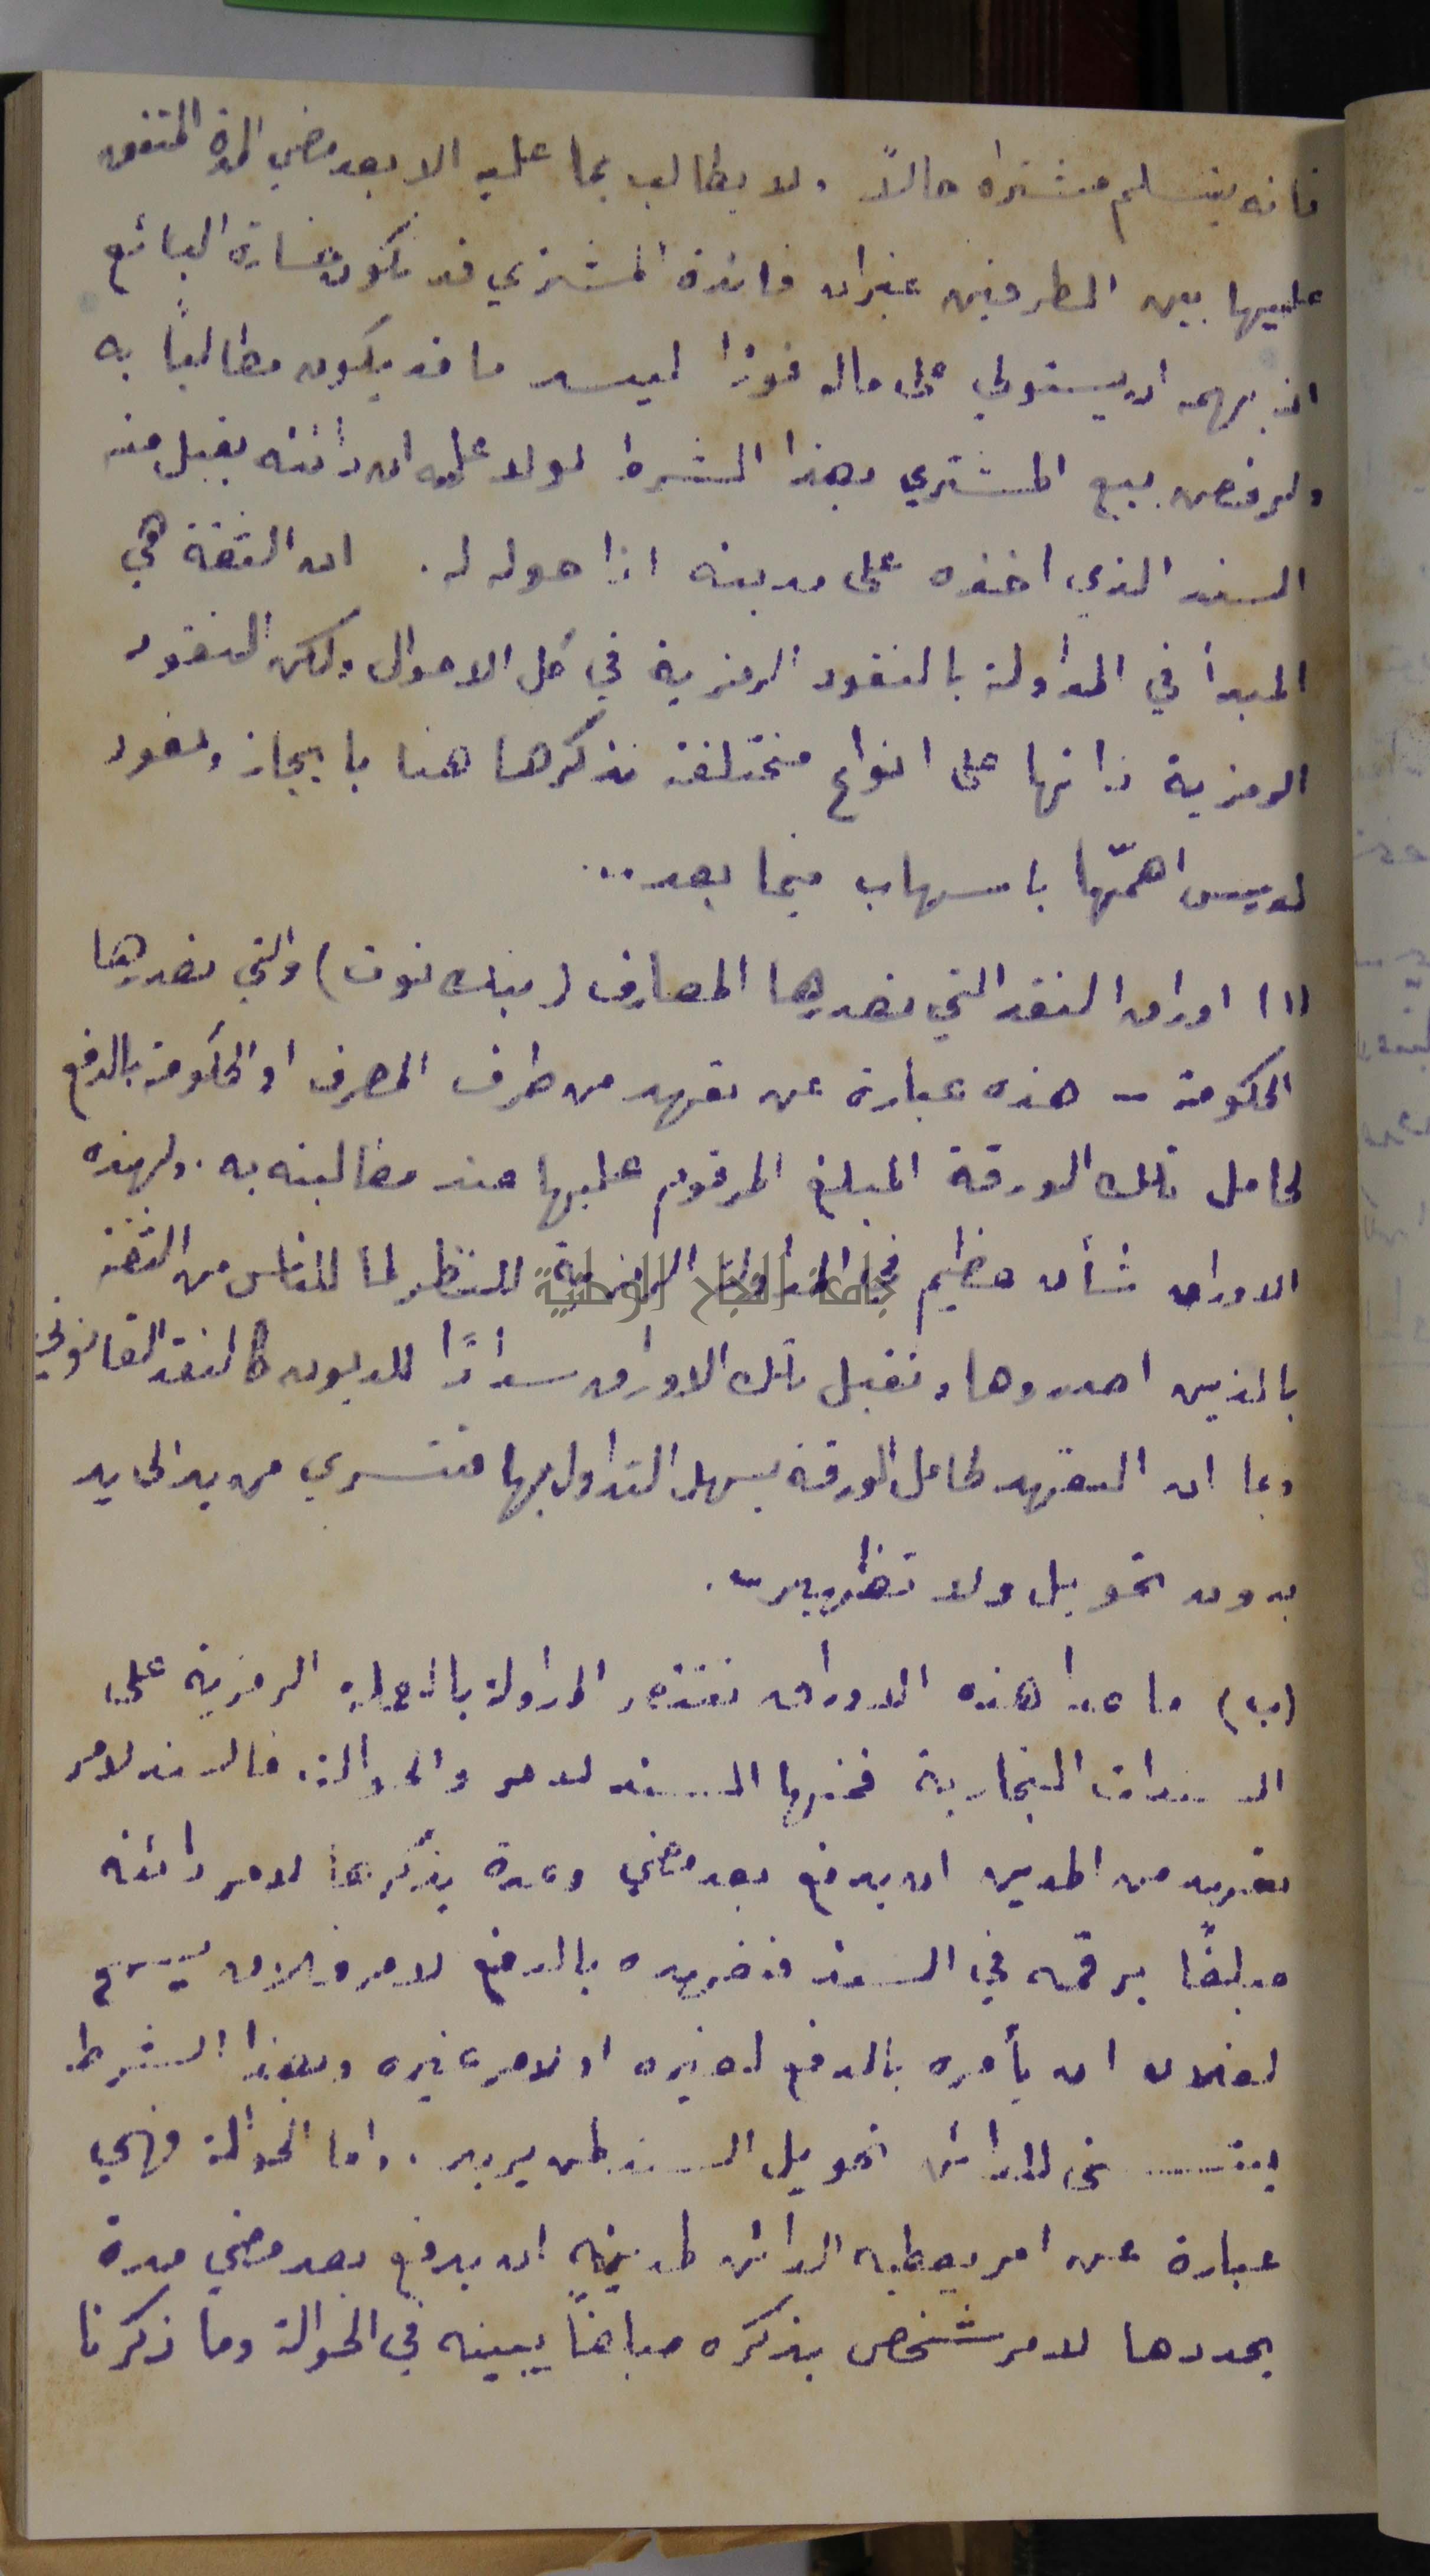 فانه يتسلم مشتراه حالاً ولا يطالب بما عليه الا بعد مضي المدة المتفق
عليها بين الطرفين غير ان فائدة المشتري قد تكون خسارة البائع
الذي يهمه ان يستولي على ماله فوراً ليسد ما قد يكون مطالباً به
ولرفض بيع المشتري بهذا الشرط لولا علمه ان دائنه يقبل منه
السند الذي اخذه على مدينه اذا حوله له. ان الثقة هي
المبدأ في المداولة بالنقود الرمزية في كل الاحوال ولكن النقود
الرمزية ذاتها على انواع مختلفة نذكرها هنا بايجاز ونعود
لدرس اهمّها باسهاب فيما بعد...
(ا) اوراق النقد التي تصدرها المصارف (بنك نوت) والتي تصدرها
الحكومة - هذه عبارة عن تعهد من طرف المصرف او الحكومة بالدفع
لحامل تلك الورقة المبلغ المرقوم عليها عند مطالبته به. ولهذه
الاوراق شأن عظيم في المداولة الرمزية للنظر لما للناس من الثقة
جامعة النجاح الوطنية
بالذين اصدروها وتقبل تلك الاوراق سداداً للديون كالنقد القانوني
وبما ان التعهد لحامل الورقة يسهل التداول بها فتسري من يد الى يد
بدون تحويل ولا تظهير.
(ب) ما عدا هذه الاوراق تقتصر المداولة بالعملة الرمزية على
السندات التجارية فمنها السند لامر والحوالة. فالسند لامر
تعهد من المدين ان يدفع بعد مضي مدة يذكرها لامر دائنه
مبلغاً يرقمه في السند فتعهده بالدفع لامر فلان يسمح
لفلان ان يأمره بالدفع لغيره او لامر غيره وبهذا الشرط
يتسنى للدائن تحويل السند لمن يريد. واما الحوالة فهي
عبارة عن امر يعطيه الدائن لمدينه ان يدفع بعد مضي مدة
يحددها لامر شخص يذكره مبلغاً يبينه في الحوالة وما ذكرنا